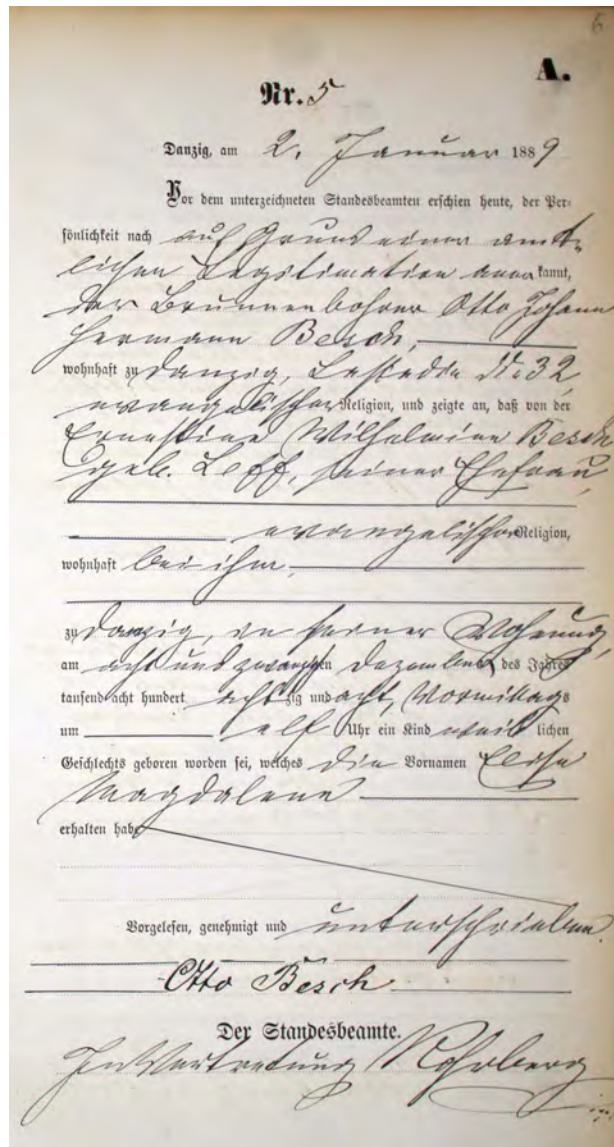 6
A.
Nr. 5
Danzig, am 2. Januar 1889
Vor dem unterzeichneten Standesbeamten erschien heute, der Per-
sönlichkeit nach auf Grund einer amt-
lichen Legitimation anerkannt,
der Brunnenbohrer Otto Johann
Hermann Besch,
wohnhaft zu Danzig, Lastadie No 32,
evangelischer Religion, und zeigte an, daß von der
Ernestine Wilhelmine Besch
geb. Leff, seiner Ehefrau,
evangelischer Religion,
wohnhaft bei ihm,
zu Danzig, in seiner Wohnung,
am acht und zwanzigsten Dezember des Jahres
tausend acht hundert achtzig und acht, Vormittags
um elf Uhr ein Kind weiblichen
Geschlechts geboren worden sei, welches die Vornamen Elise
Magdalene
erhalten habe
Vorgelesen, genehmigt und unterschrieben.
Otto Besch
Der Standesbeamte.
In Vertretung Rohrberg